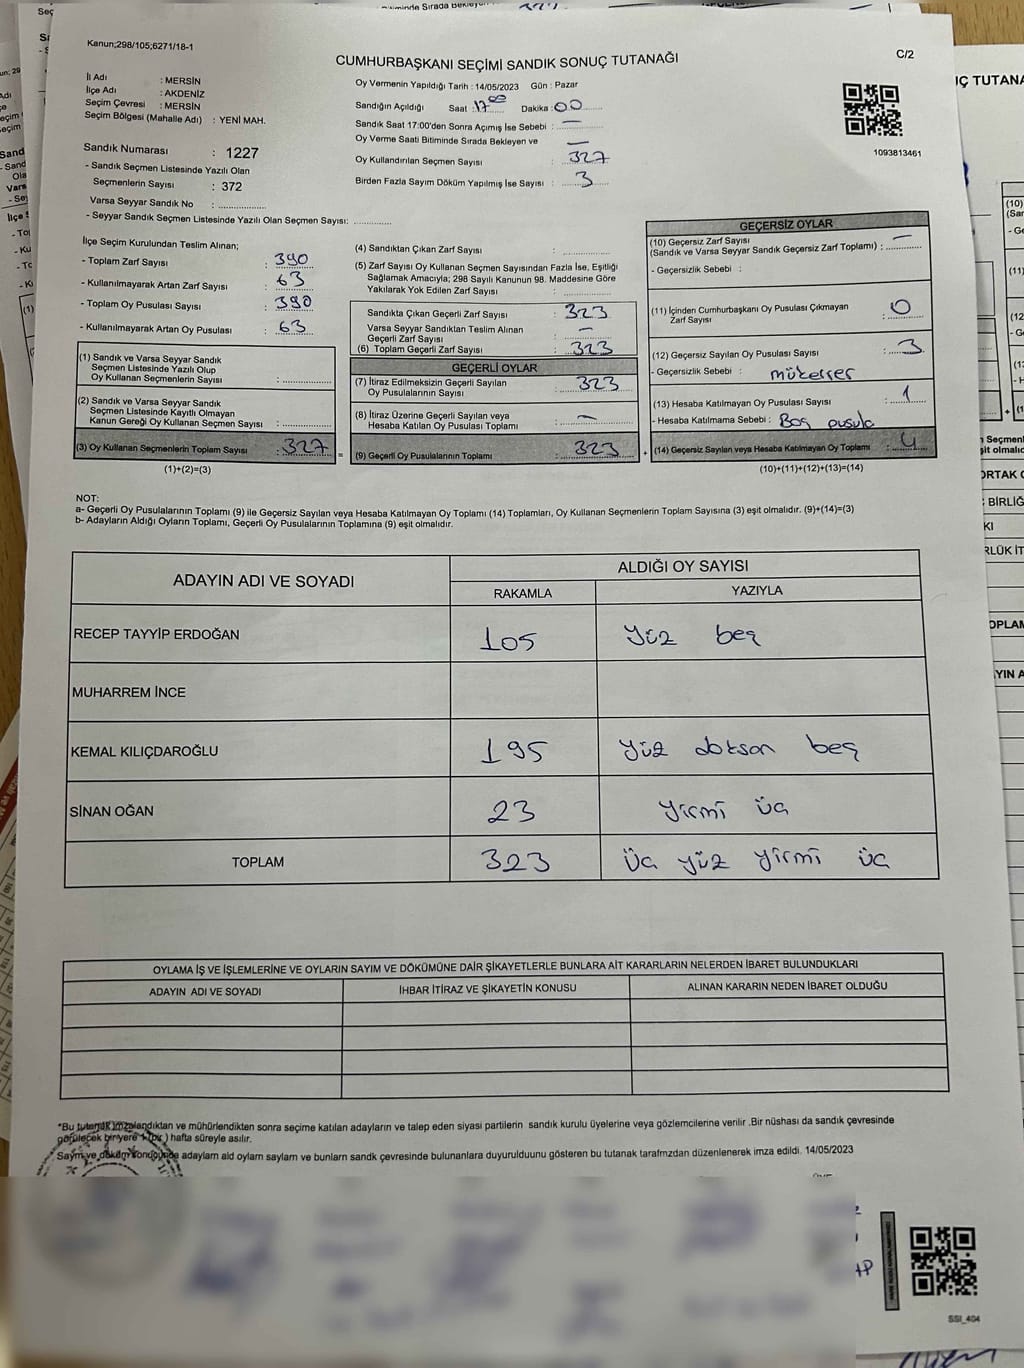 Kanun;298/105;6271/18-1
C/2
CUMHURBAŞKANI SEÇİMİ SANDIK SONUÇ TUTANAĞI
İl Adı : MERSİN
İlçe Adı : AKDENİZ
Seçim Çevresi : MERSİN
Seçim Bölgesi (Mahalle Adı) : YENİ MAH.
Oy Vermenin Yapıldığı Tarih : 14/05/2023 Gün : Pazar
Sandığın Açıldığı Saat : 17 00 Dakika : 00
Sandık Saat 17:00'den Sonra Açımış İse Sebebi : —
Oy Verme Saati Bitiminde Sırada Bekleyen ve
Oy Kullandırılan Seçmen Sayısı : — 327
Birden Fazla Sayım Döküm Yapılmış İse Sayısı : 3
1093813461
Sandık Numarası : 1227
- Sandık Seçmen Listesinde Yazılı Olan
Seçmenlerin Sayısı : 372
Varsa Seyyar Sandık No :
- Seyyar Sandık Seçmen Listesinde Yazılı Olan Seçmen Sayısı:
İlçe Seçim Kurulundan Teslim Alınan;
- Toplam Zarf Sayısı : 390
- Kullanılmayarak Artan Zarf Sayısı : 63
- Toplam Oy Pusulası Sayısı : 390
- Kullanılmayarak Artan Oy Pusulası : 63
(1) Sandık ve Varsa Seyyar Sandık
Seçmen Listesinde Yazılı Olup
Oy Kullanan Seçmenlerin Sayısı :
(2) Sandık ve Varsa Seyyar Sandık
Seçmen Listesinde Kayıtlı Olmayan
Kanun Gereği Oy Kullanan Seçmen Sayısı :
(3) Oy Kullanan Seçmenlerin Toplam Sayısı : 327
(1)+(2)=(3)
(4) Sandıktan Çıkan Zarf Sayısı :
(5) Zarf Sayısı Oy Kullanan Seçmen Sayısından Fazla İse, Eşitliği
Sağlamak Amacıyla; 298 Sayılı Kanunun 98. Maddesine Göre
Yakılarak Yok Edilen Zarf Sayısı :
Sandıkta Çıkan Geçerli Zarf Sayısı : 323
Varsa Seyyar Sandıktan Teslim Alınan
Geçerli Zarf Sayısı : —
(6) Toplam Geçerli Zarf Sayısı : 323
GEÇERLİ OYLAR
(7) İtiraz Edilmeksizin Geçerli Sayılan
Oy Pusulalarının Sayısı : 323
(8) İtiraz Üzerine Geçerli Sayılan veya
Hesaba Katılan Oy Pusulası Toplamı : —
= (9) Geçerli Oy Pusulalarının Toplamı : 323
GEÇERSİZ OYLAR
(10) Geçersiz Zarf Sayısı
(Sandık ve Varsa Seyyar Sandık Geçersiz Zarf Toplamı) : —
- Geçersizlik Sebebi :
(11) İçinden Cumhurbaşkanı Oy Pusulası Çıkmayan
Zarf Sayısı : 0
(12) Geçersiz Sayılan Oy Pusulası Sayısı : 3
- Geçersizlik Sebebi : mükerrer
(13) Hesaba Katılmayan Oy Pusulası Sayısı : 1
- Hesaba Katılmama Sebebi : Boş pusula
+ (14) Geçersiz Sayılan veya Hesaba Katılmayan Oy Toplamı : 4
(10)+(11)+(12)+(13)=(14)
NOT:
a- Geçerli Oy Pusulalarının Toplamı (9) ile Geçersiz Sayılan veya Hesaba Katılmayan Oy Toplamı (14) Toplamları, Oy Kullanan Seçmenlerin Toplam Sayısına (3) eşit olmalıdır. (9)+(14)=(3)
b- Adayların Aldığı Oyların Toplamı, Geçerli Oy Pusulalarının Toplamına (9) eşit olmalıdır.
ADAYIN ADI VE SOYADI
ALDIĞI OY SAYISI
RAKAMLA YAZIYLA
RECEP TAYYİP ERDOĞAN 105 Yüz beş
MUHARREM İNCE
KEMAL KILIÇDAROĞLU 195 Yüz doksan beş
SİNAN OĞAN 23 Yirmi üç
TOPLAM 323 Üç yüz yirmi üç
OYLAMA İŞ VE İŞLEMLERİNE VE OYLARIN SAYIM VE DÖKÜMÜNE DAİR ŞİKAYETLERLE BUNLARA AİT KARARLARIN NELERDEN İBARET BULUNDUKLARI
ADAYIN ADI VE SOYADI İHBAR İTİRAZ VE ŞİKAYETİN KONUSU ALINAN KARARIN NEDEN İBARET OLDUĞU
*Bu tutanak imzalandıktan ve mühürlendikten sonra seçime katılan adayların ve talep eden siyasi partilerin sandık kurulu üyelerine veya gözlemcilerine verilir .Bir nüshası da sandık çevresinde
görülecek bir yere 1 (bir) hafta süreyle asılır.
Sayım ve döküm sonucunda adaylarn ald oylarn saylarn ve bunlarn sandk çevresinde bulunanlara duyurulduunu gösteren bu tutanak tarafmzdan düzenlenerek imza edildi. 14/05/2023
SSI_404